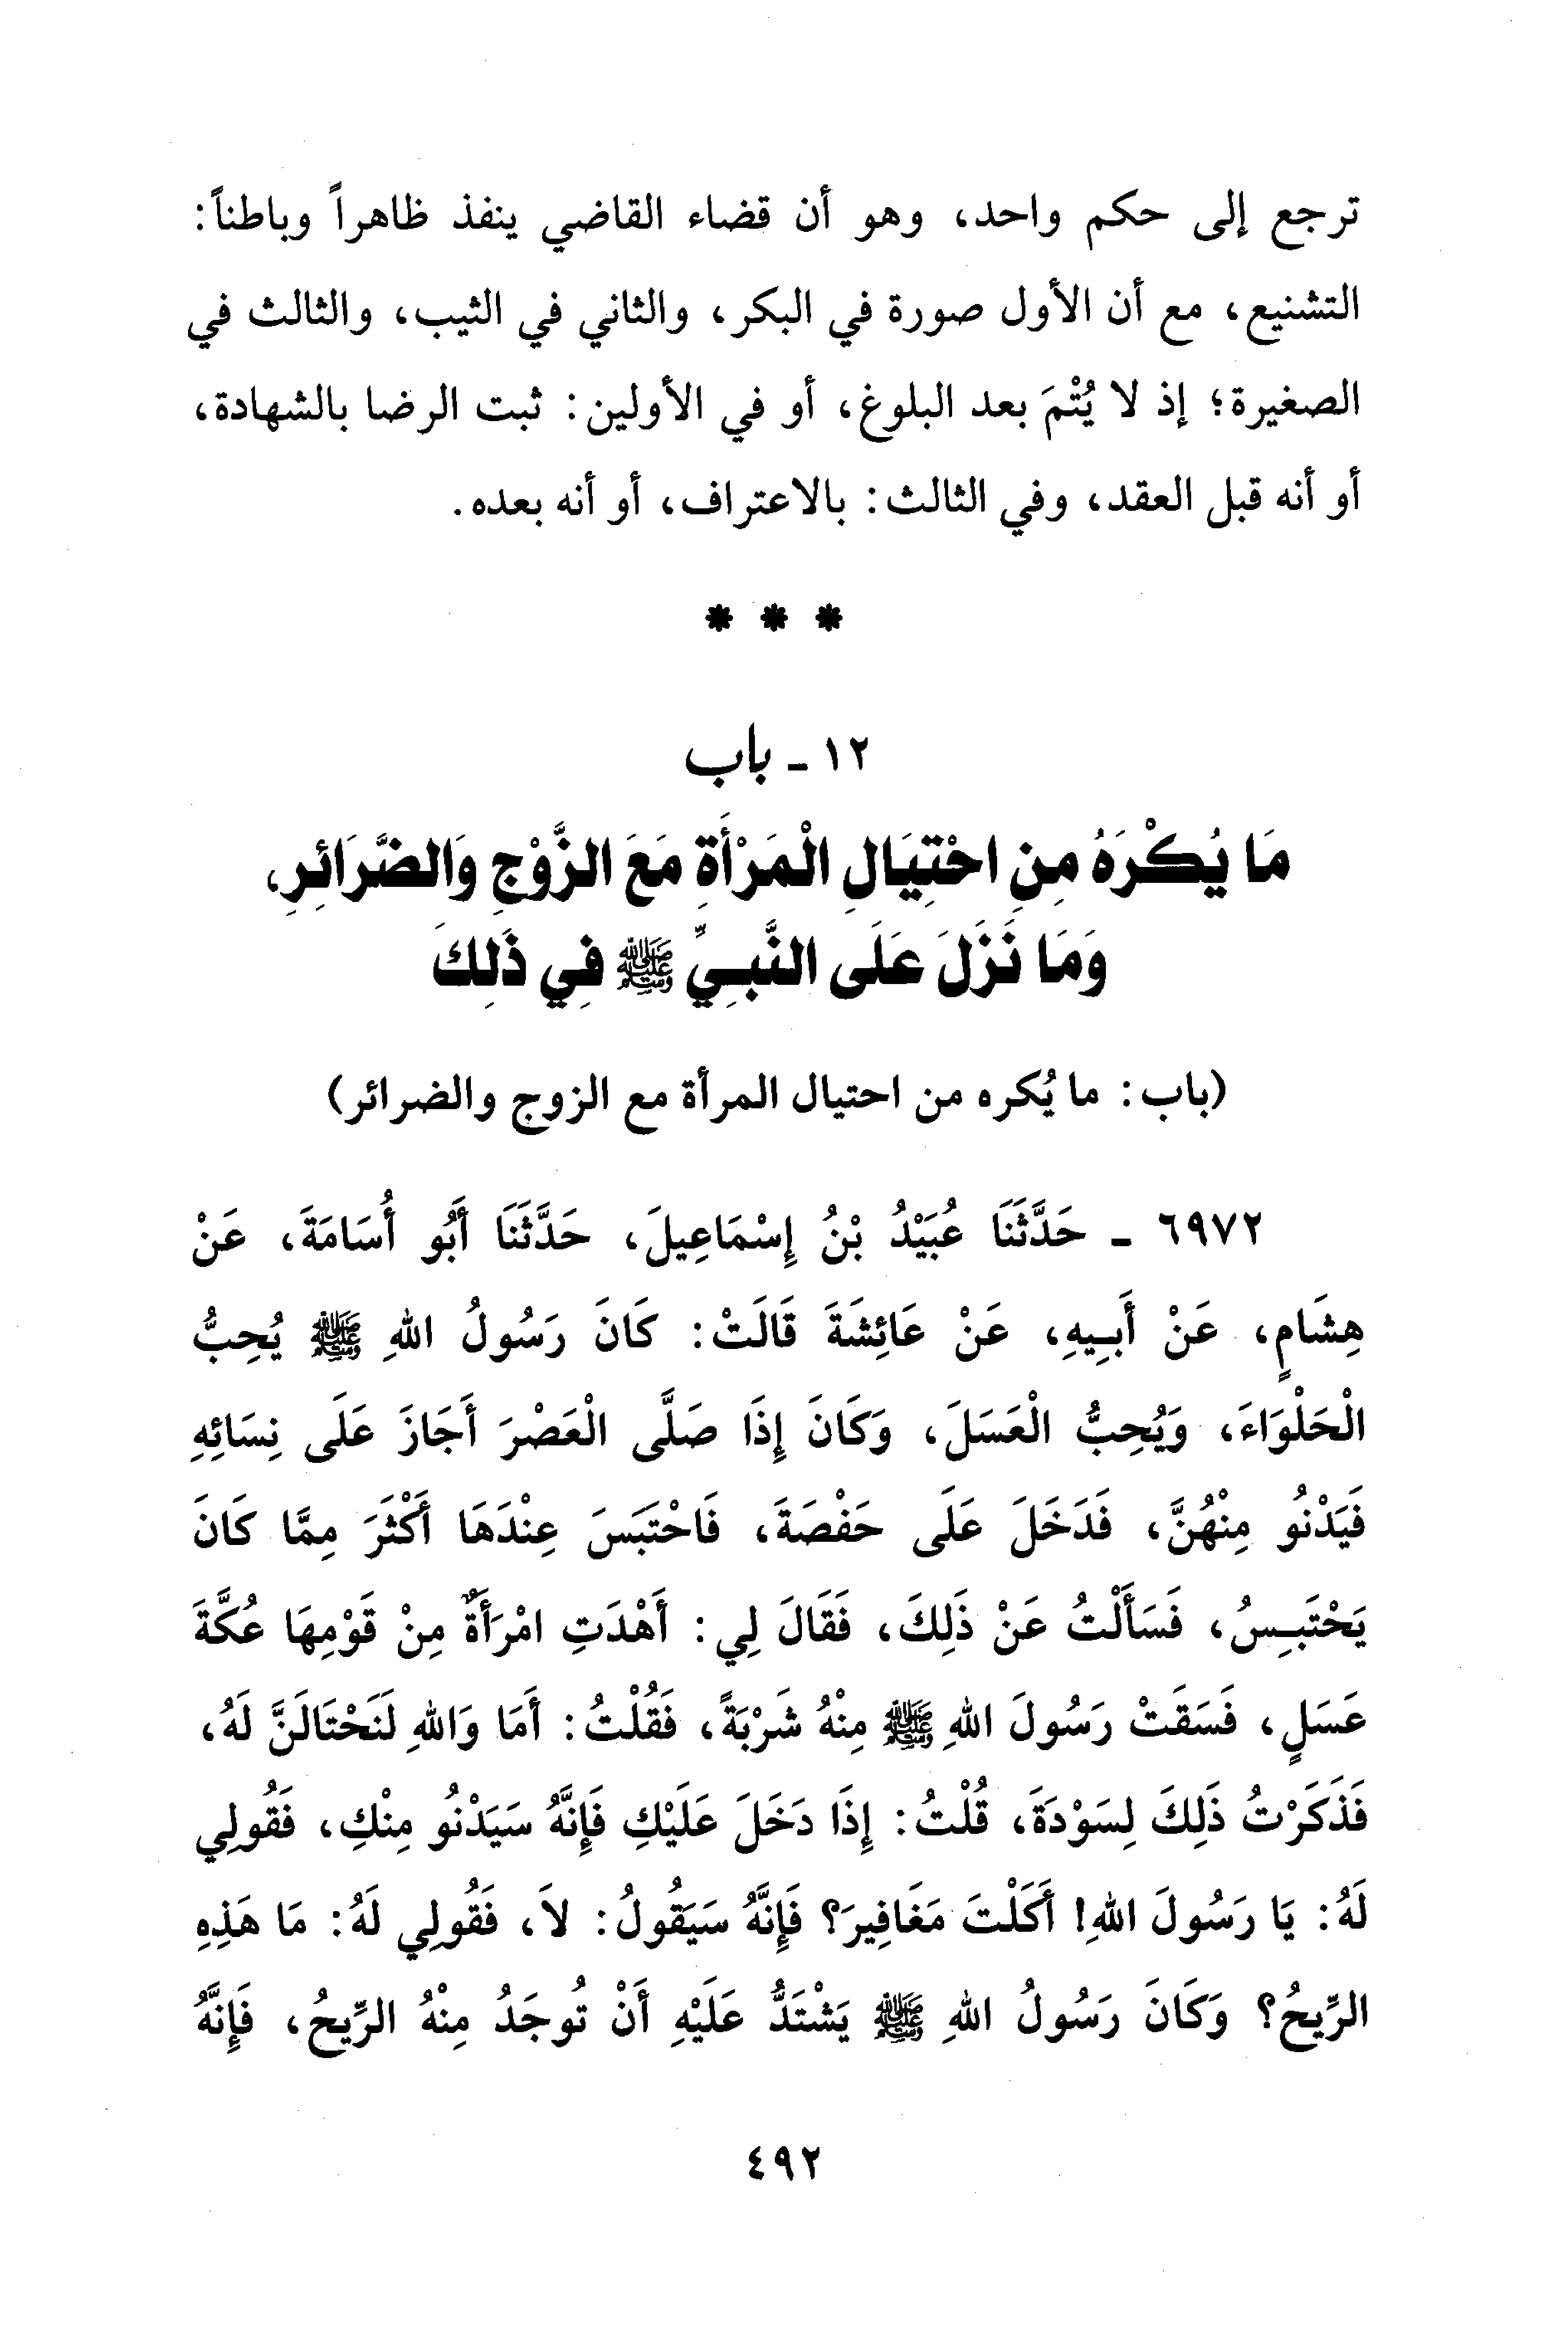 ترجع إلى حكم واحد، وهو أن قضاء القاضي ينفذ ظاهراً وباطناً:
التشنيع، مع أن الأول صورة في البكر، والثاني في الثيب، والثالث في
الصغيرة؛ إذ لا يُتْمَ بعد البلوغ، أو في الأولين: ثبت الرضا بالشهادة،
أو أنه قبل العقد، وفي الثالث: بالاعتراف، أو أنه بعده.
* * *
١٢ - باب
مَا يُكْرَهُ مِنِ احْتِيَالِ الْمَرْأَةِ مَعَ الزَّوْجِ وَالضَّرَائِرِ،
وَمَا نَزَلَ عَلَى النَّبِيِّ ﷺ فِي ذَلِكَ
(باب: ما يُكره من احتيال المرأة مع الزوج والضرائر)
٦٩٧٢ - حَدَّثَنَا عُبَيْدُ بْنُ إِسْمَاعِيلَ، حَدَّثَنَا أَبُو أُسَامَةَ، عَنْ
هِشَامٍ، عَنْ أَبِيهِ، عَنْ عَائِشَةَ قَالَتْ: كَانَ رَسُولُ اللهِ ﷺ يُحِبُّ
الْحَلْوَاءَ، وَيُحِبُّ الْعَسَلَ، وَكَانَ إِذَا صَلَّى الْعَصْرَ أَجَازَ عَلَى نِسَائِهِ
فَيَدْنُو مِنْهُنَّ، فَدَخَلَ عَلَى حَفْصَةَ، فَاحْتَبَسَ عِنْدَهَا أَكْثَرَ مِمَّا كَانَ
يَحْتَبِسُ، فَسَأَلْتُ عَنْ ذَلِكَ، فَقَالَ لِي: أَهْدَتِ امْرَأَةٌ مِنْ قَوْمِهَا عُكَّةَ
عَسَلٍ، فَسَقَتْ رَسُولَ اللهِ ﷺ مِنْهُ شَرْبَةً، فَقُلْتُ: أَمَا وَاللهِ لَنَحْتَالَنَّ لَهُ،
فَذَكَرْتُ ذَلِكَ لِسَوْدَةَ، قُلْتُ: إِذَا دَخَلَ عَلَيْكِ فَإِنَّهُ سَيَدْنُو مِنْكِ، فَقُولِي
لَهُ: يَا رَسُولَ اللهِ! أَكَلْتَ مَغَافِيرَ؟ فَإِنَّهُ سَيَقُولُ: لاَ، فَقُولِي لَهُ: مَا هَذِهِ
الرِّيحُ؟ وَكَانَ رَسُولُ اللهِ ﷺ يَشْتَدُّ عَلَيْهِ أَنْ تُوجَدُ مِنْهُ الرِّيحُ، فَإِنَّهُ
٤٩٢